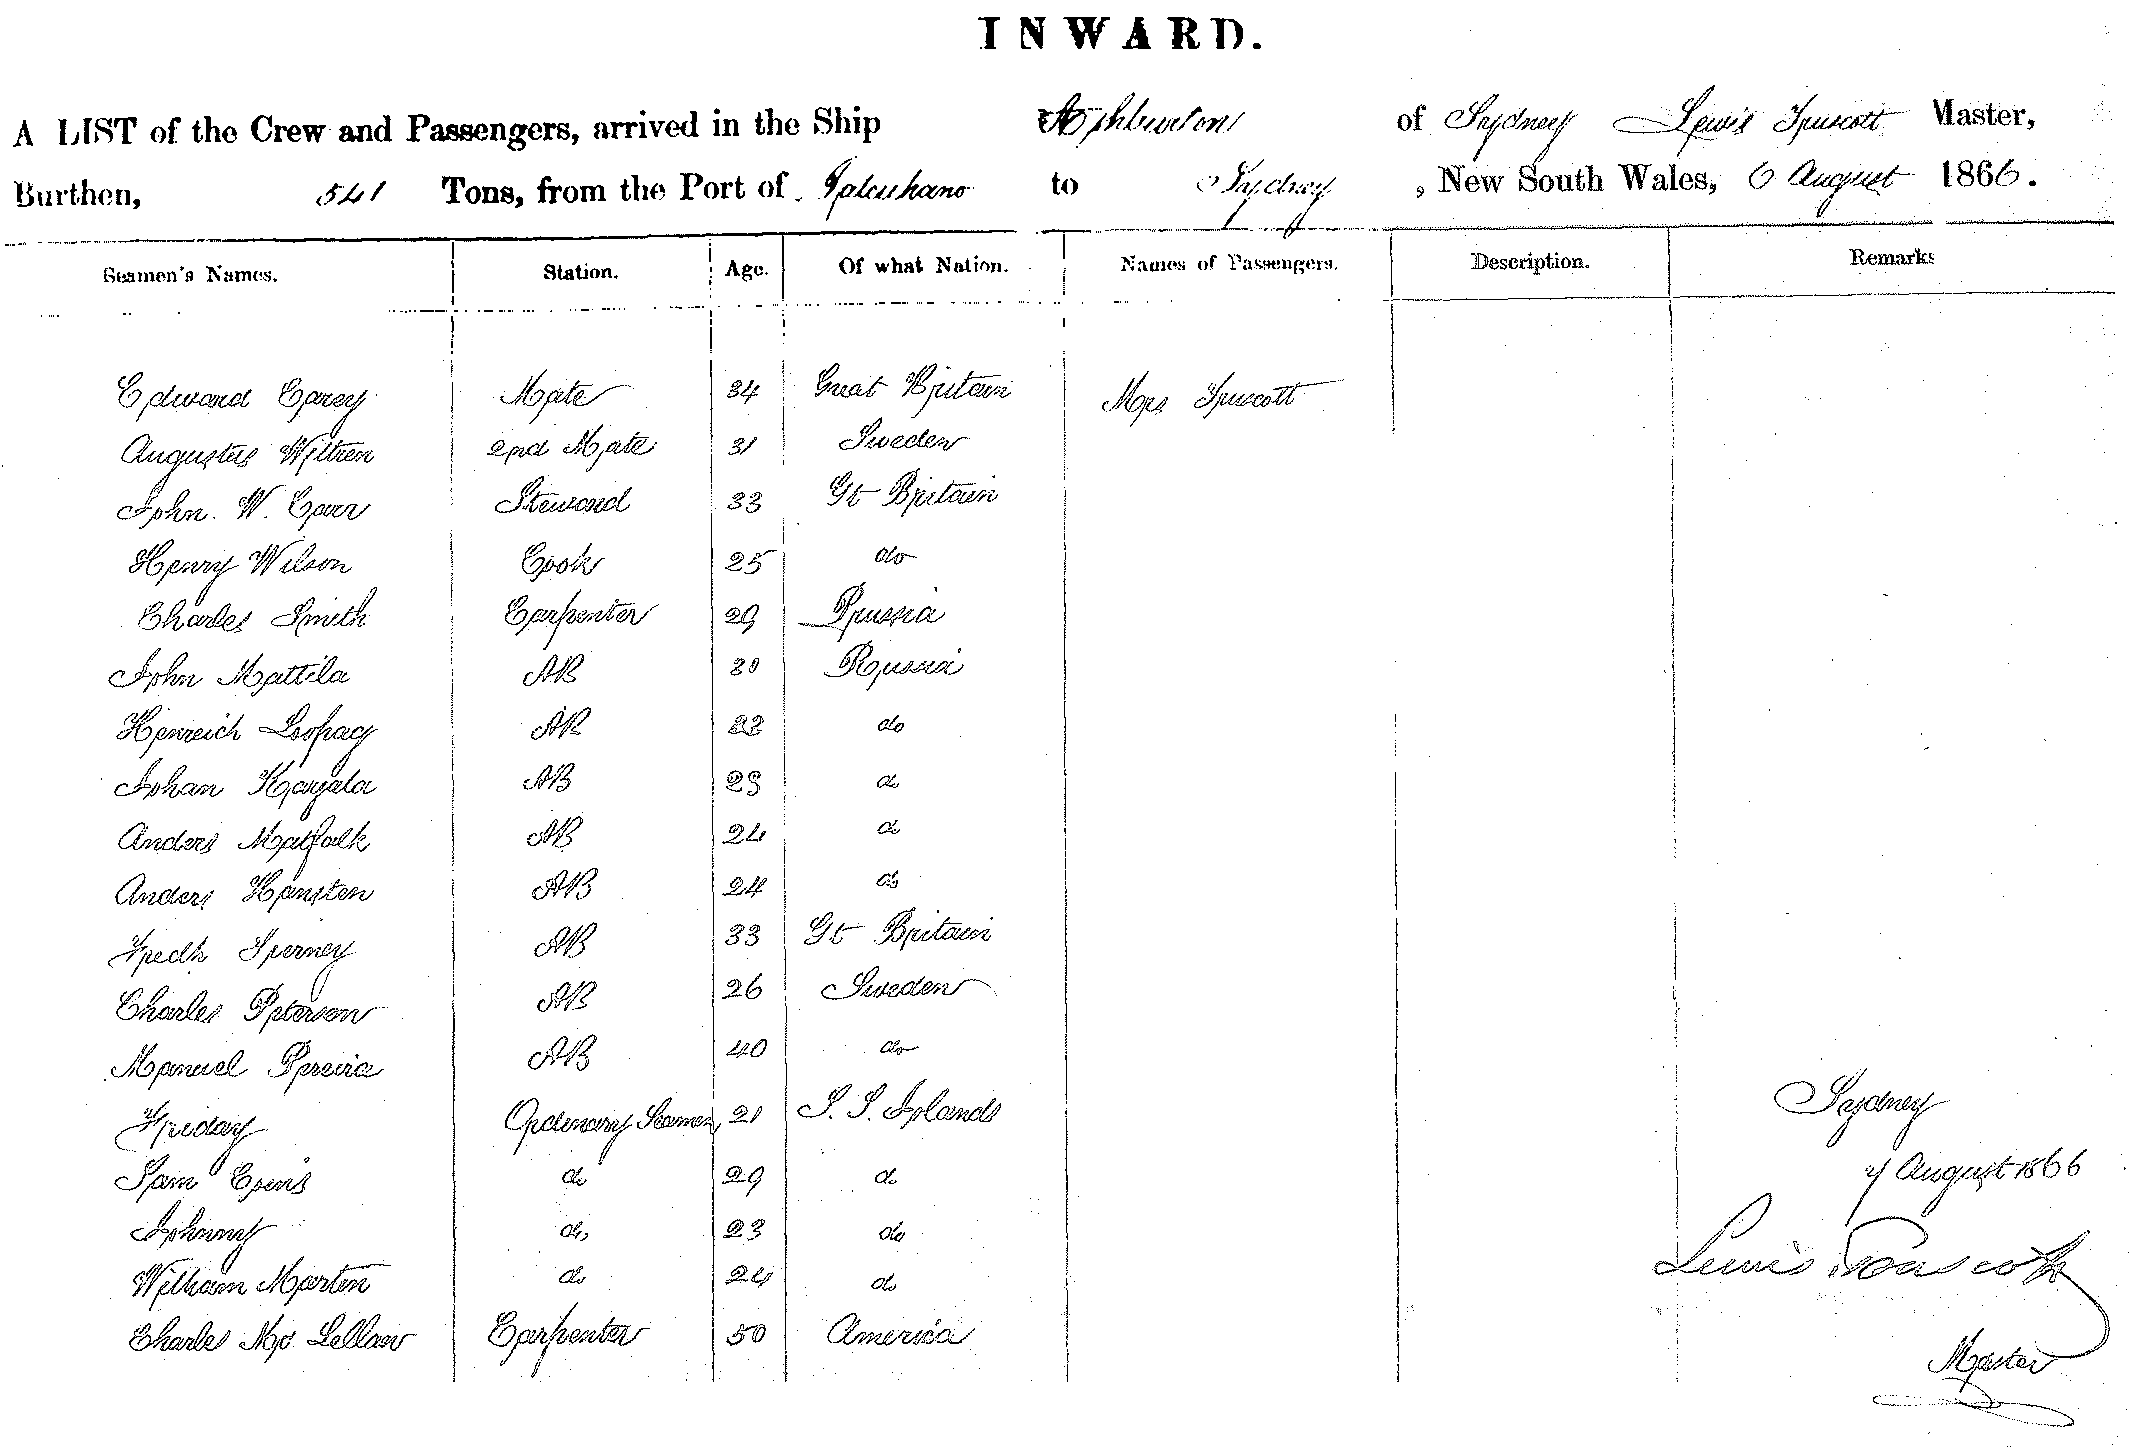 INWARD.
A LIST of the Crew and Passengers, arrived in the Ship Ashburton of Sydney Lewis Truscott Master,
Burthen, 541 Tons, from the Port of Talcuhano to Sydney, New South Wales, 6 August 1866.
Seamen's Names. Station. Age. Of what Nation. Names of Passengers. Description. Remarks
Edward Carey Mate 34 Great Britain Mrs Truscott
Augustus Wiltren 2nd Mate 31 Sweden
John. W. Carr Steward 33 Gt Britain
Henry Wilson Cook 25 do
Charles Smith Carpenter 29 Prussia
John Mattila AB 30 Russia
Henreich Loopag AB 22 do
Johan Karjala AB 23 do
Anders Matfolk AB 24 do
Anders Hansten AB 24 do
Fredk Sperney AB 33 Gt Britain
Charles Peterson AB 26 Sweden
Manuel Pereira AB 40 do
Friday Ordinary Seamen 21 S. S. Islands
Sam do 29 do
Johnny do 23 do
William Marten do 24 do
Charles Mc Lellan Carpenter 50 America
Sydney
7 August 1866
Lewis Truscott
Master